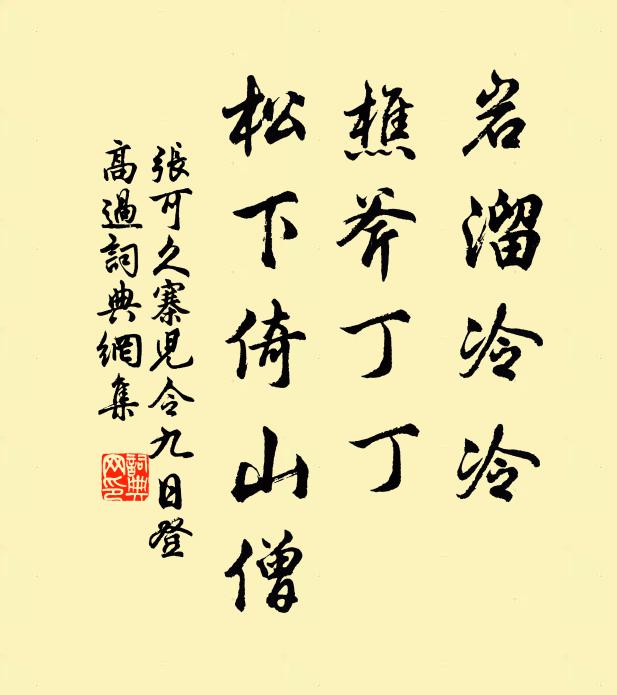 岩溜冷冷
樵斧丁丁
松下倚山僧
張可久寨児令九日登
高過詞典網集
詞典網印